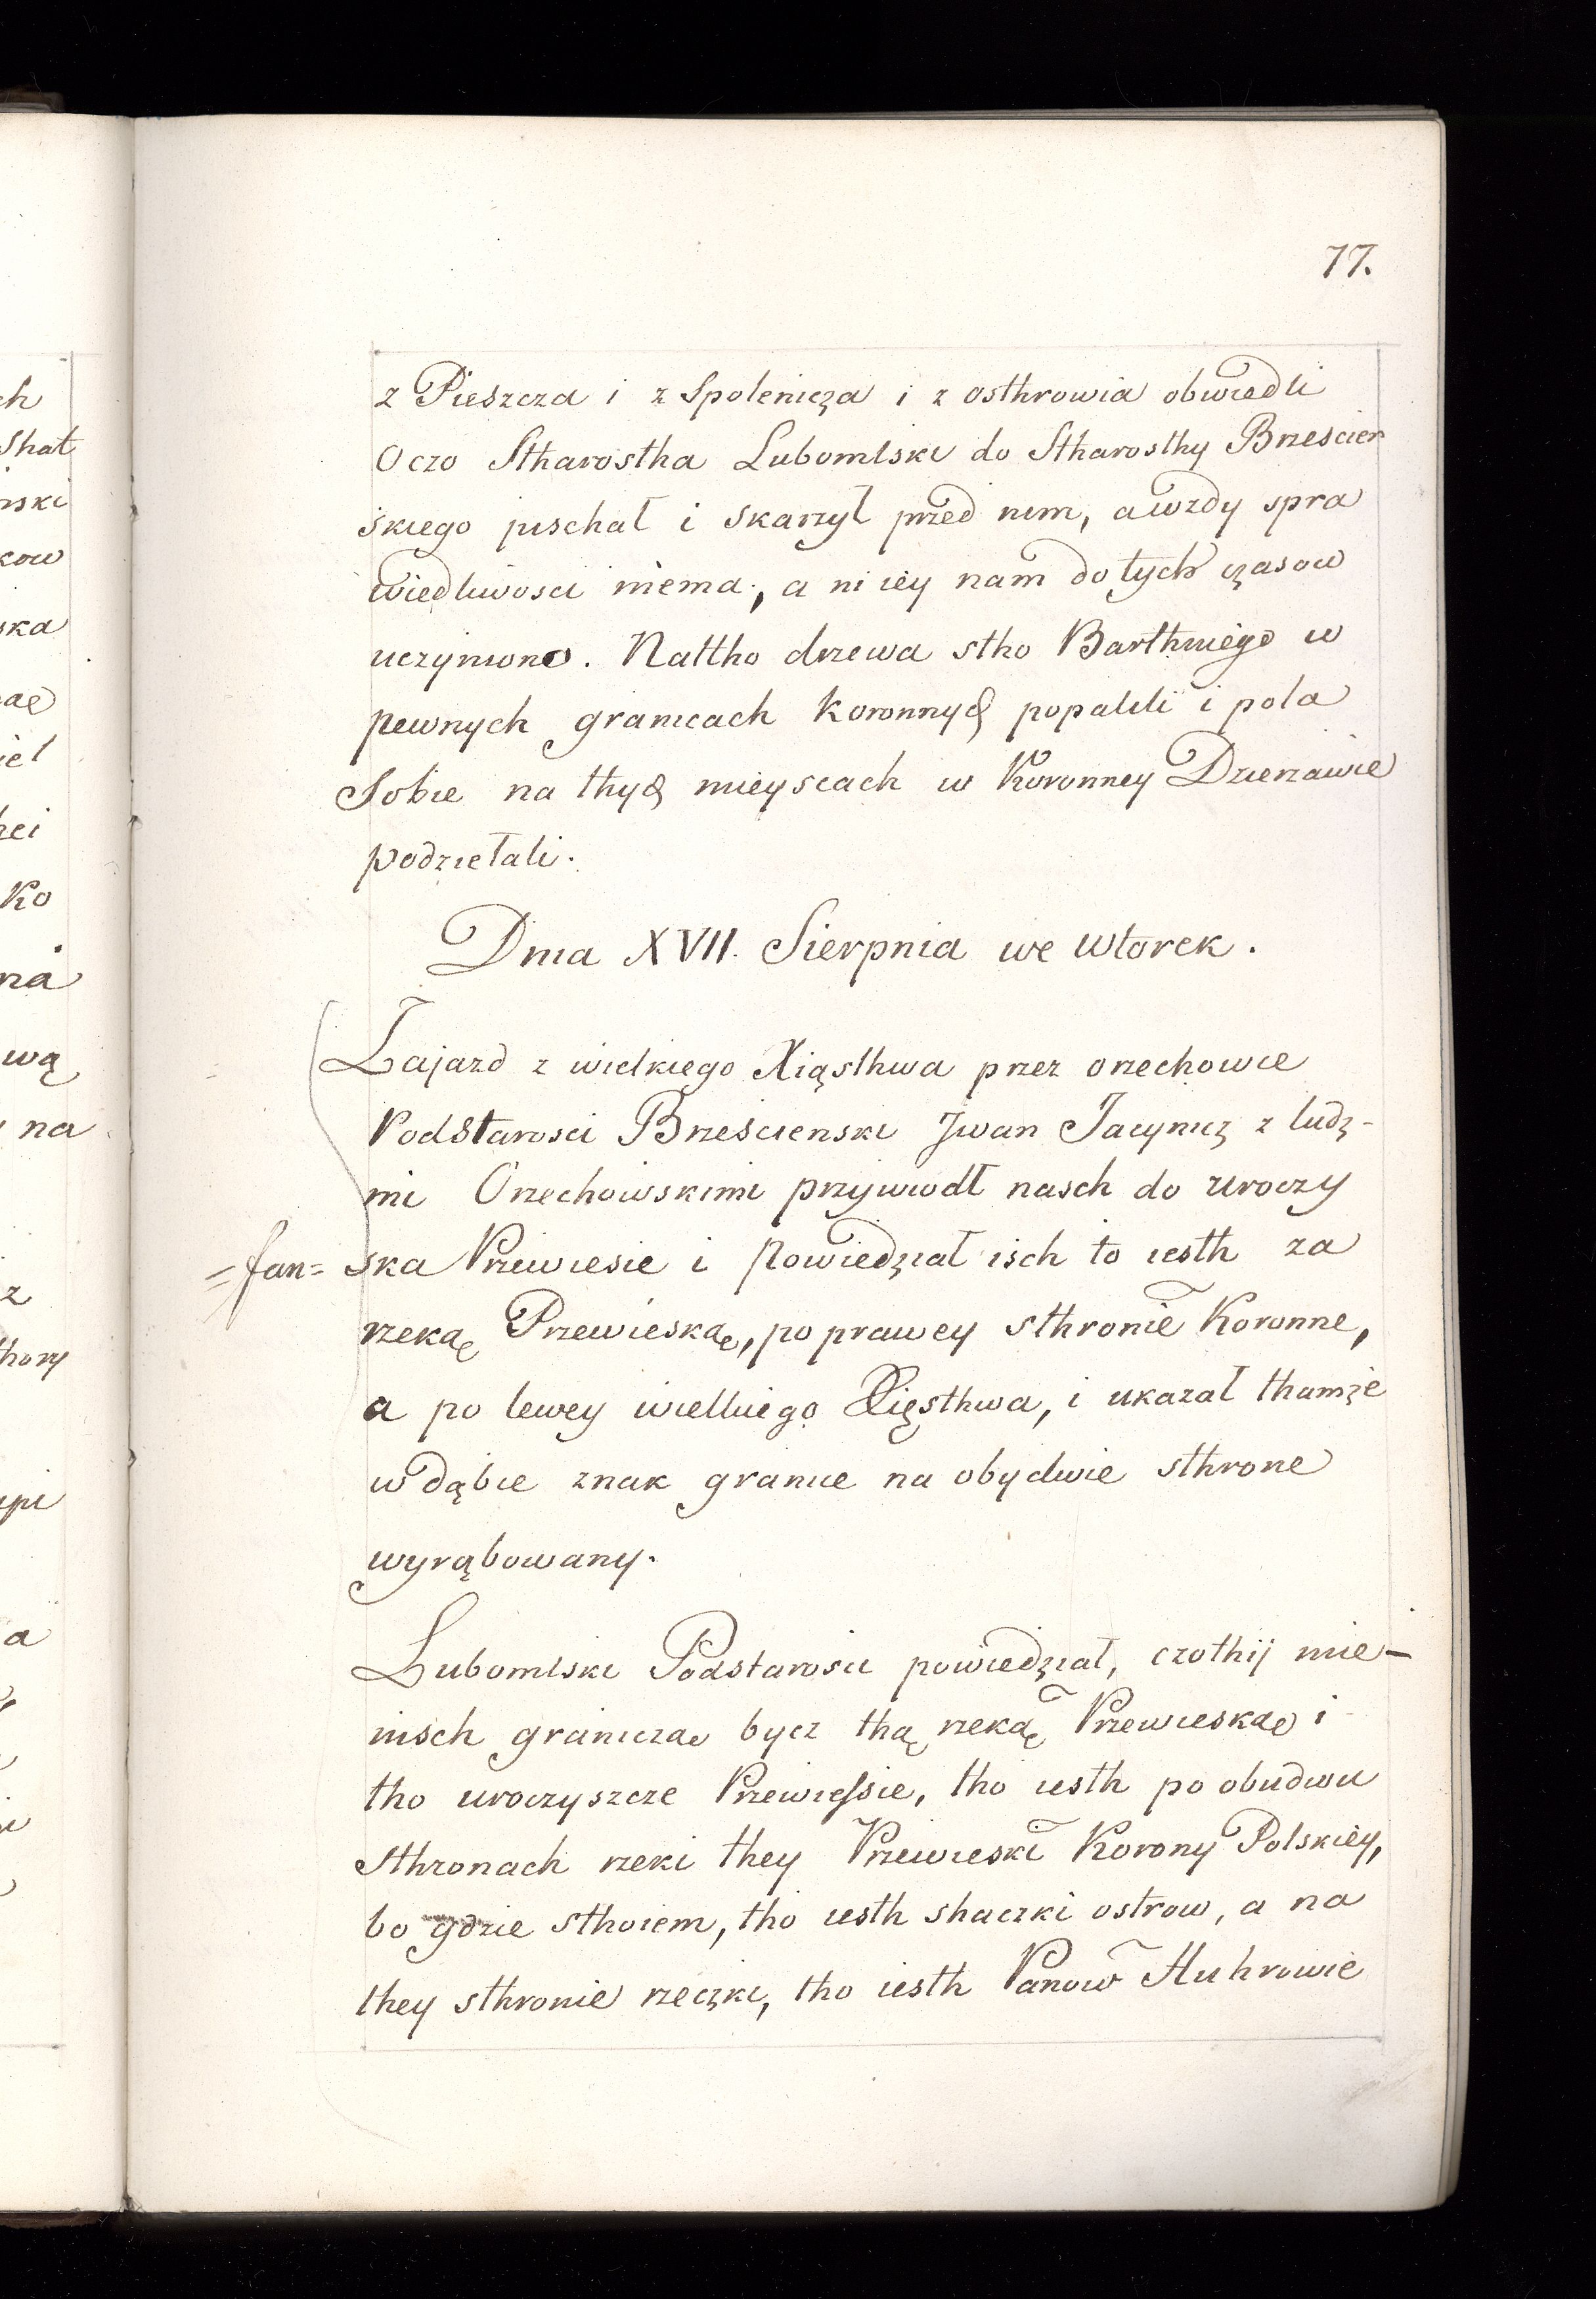 77.
z Pieszcza i z Spolenicza i z osthrowia obwiedli
Oczo Stharostha Lubomlski do Stharosthy Brzescien
skiego pischał i skarzył przed nim, a wzdy spra
wiedliwosci niema, a ni iey nam do tych czasow
uczyniono. Nattho drzewa stho Barthniego w
pewnych granicach koronnych popalili i pola
Sobie na thych mieyscach w Koronney Dzierzawie
podziełali.
Dnia XVII. Sierpnia we wtorek.
Zajazd z wielkiego Xiąsthwa przez orzechowce
Podstarosci Brzescienski Jwan Jacynicz z ludz-
mi Orzechowskimi przywiodł nasch do uroczy
ska Przewiesie i powiedział isch to iesth za
rzeką Przewieską, po prawey sthronie Koronne,
a po lewey wielkiego Xięsthwa, i ukazał thamże
w dąbie znak granice na obydwie sthrone
wyrąbowany.
Lubomlski Podstarosci powiedział, czothij mie-
nisch graniczae bycz thą rzeką Przewieskae i
tho uroczyszcze Przewiessie, tho iesth po obudwu
Sthronach rzeki they Przewieski Korony Polskiey,
bo gdzie sthoiem, tho iesth shaczki ostrow, a na
they sthronie rzeczki, tho iesth Panow Huhrowie
ch
Shat
nski
kow
ska
ae
iel
Ko
na
wą
na
z
thory
a